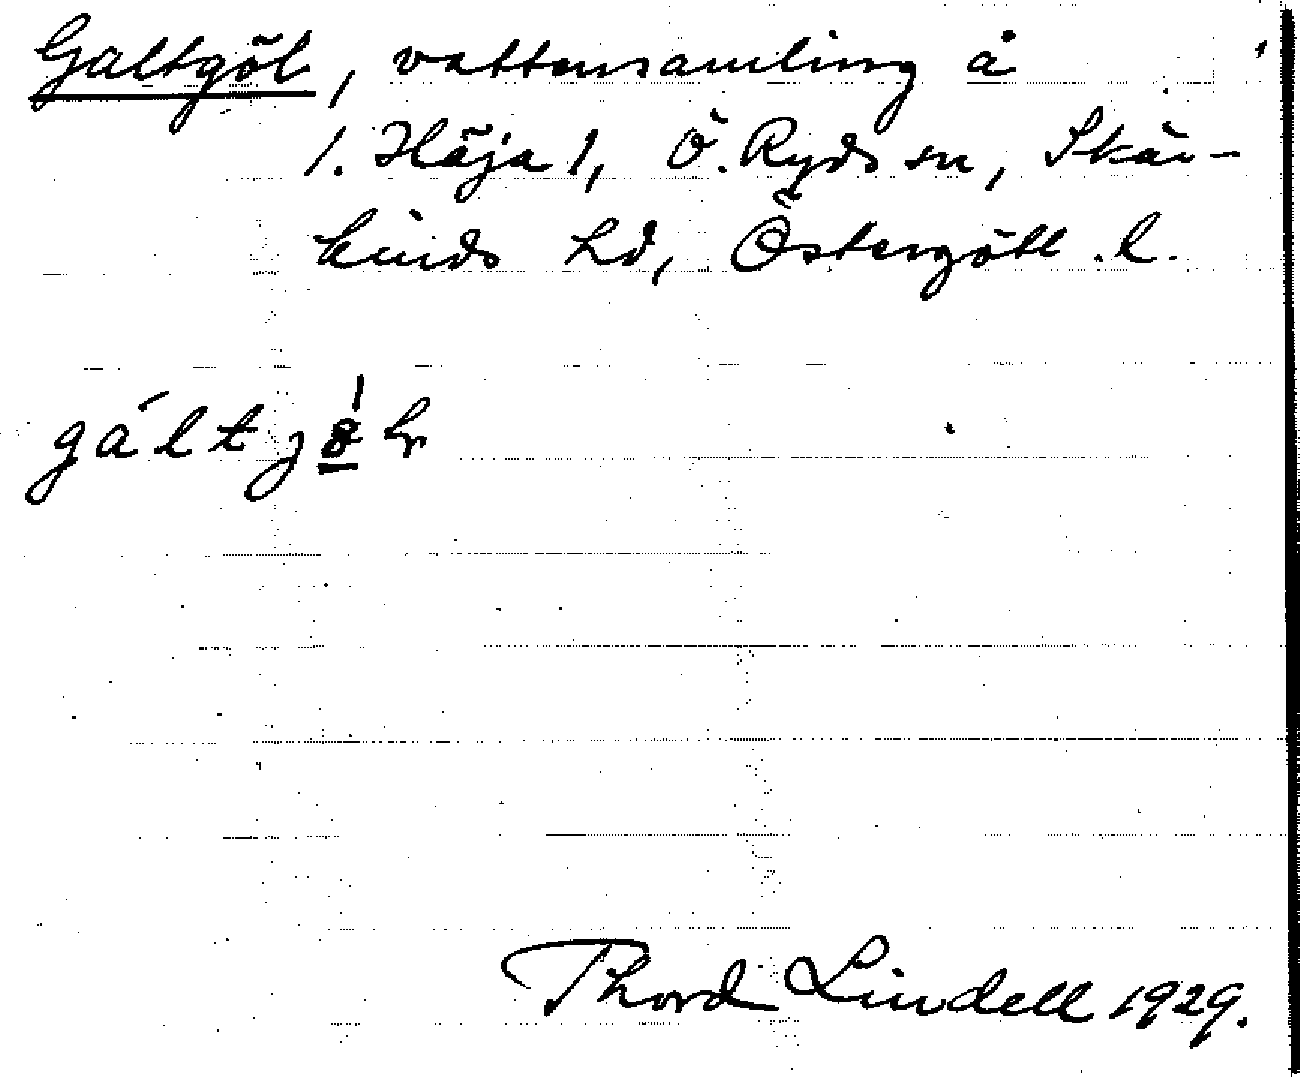 Galtgöl, vattensamling å
1. Häja 1, Ö. Ryds sn, Skär-
kinds hd, Östergötl. l.
Thord Lindell 1929.